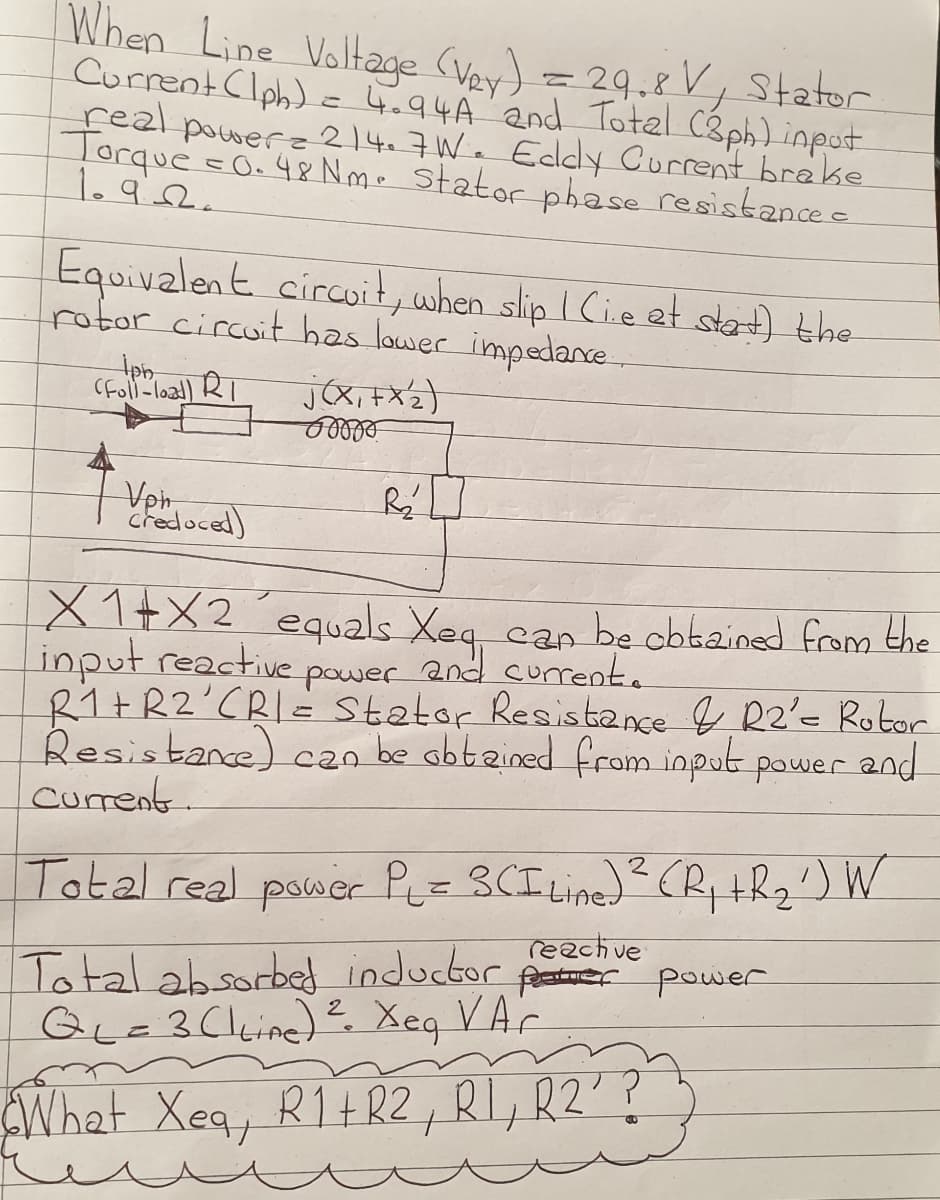 When Line Voltage (VRY) = 29.8 V, Stator
Current (Iph) = 4.94A and Total (3ph) input
real power = 214.7W. Eddy Current brake
Torque = 0.48 Nm. Stator phase resistance =
1.9 Ω.
Equivalent circuit, when slip 1 (i.e at start) the
rotor circuit has lower impedance.
Iph
(full-load) R1 j(X1+X'2)
Vph
(reduced) R2'
X1+X2' equals Xeq can be obtained from the
input reactive power and current.
R1+R2' (R1= Stator Resistance & R2'= Rotor
Resistance) can be obtained from input power and
current.
Total real power PL = 3(ILine)² (R1+R2') W
reactive
Total absorbed inductor power
QL = 3(ILine)². Xeq VAr
What Xeq, R1+R2, R1, R2'?